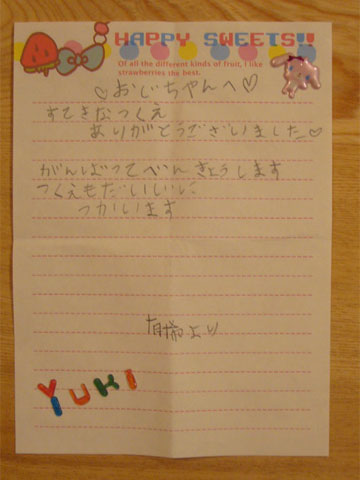 HAPPY SWEETS!!
Of all the different kinds of fruit, I like
strawberries the best.
♡おじちゃんへ♡
すてきなつくえ
ありがとうございました♡
がんばってべんきょうします
つくえもだいじに
つかいます
より
YUKI